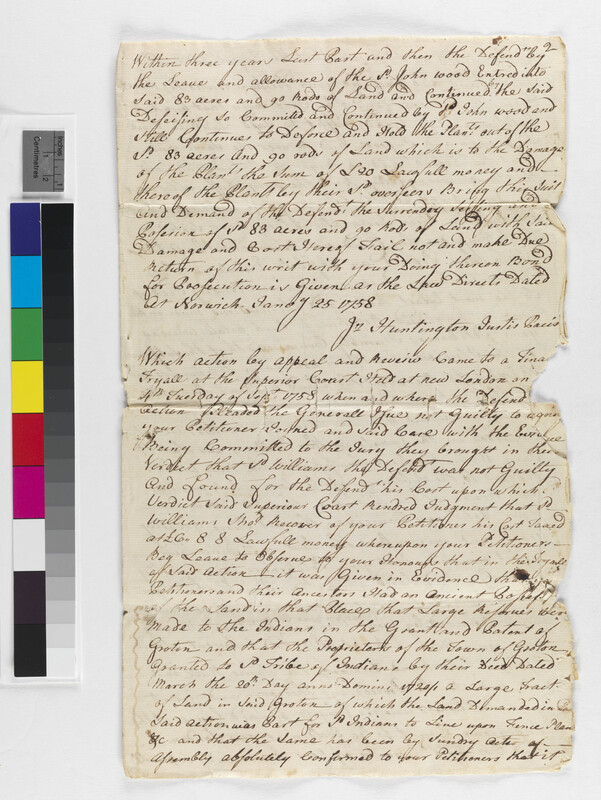 2
Within three years Last Past and then the Defendt by
the Leave and allowance of the Sd John wood Entred into
Said 83 acres and 90 Rods of Land and Continued the Said
Deseising So Commited and Continued by Sd John wood and
Still Continues to Deforce and Hold the Plants out of the
Sd 83 acres and 90 rods of Land which is to the Damage
of the Plants the Sum of £20 Lawfull money and
thereof the Plants by their Sd overseers Bring this Suit
and Demand of the Defendt the Surrendry Seizing and
Posesion of Sd 83 acres and 90 Rods of Land with Said
Damage and Cost Hereof Fail not and make Due
Return of this writ with your Doing thereon Bond
for Prosecution is Given as the Law Directs Dated
At Norwich Jany 25 1758
Jn Huntington Justis Pacis
Which action by appeal and Reveiw Came to a Fina
Tryall at the Superior Court Held at new London on
4th Tuesday of Sept 1758 when and where the Defend
action Pleaded the Generall Isue not Guilty to
your Petitioners Joined and Said Case with the
Being Committed to the Jury they brought in their
Verdict that Sd Williams the Defendt was not Guilty
And Found for the Defendt his Cost upon which
Verdict Said Superiour Court Rendred Judgment that Sd
Williams Shod Recover of your Petitioners his Cost Taxed
at £6 8 8 Lawfull money whereupon your Petitioners
Beg Leave to Observe to your Honours that in the Tryall
of Said Action it was Given in Evidence that
Petitioners and their Ancestors Had an Ancient
of the Land in that Place that Large Reserves were
Made to the Indians in the Grant and Patent of
Groton and that the Proprietors of the Town of Groton
Granted to Sd Tribe of Indians by their Deed Dated
March the 20th Day anno Domini a Large Tract
of Land in Said Groton of which the Land Demanded in
Said Action was Part for Sd Indians to Live upon Fence Plan
&c and that the Same has been by Sundry Acts of
Assembly absolutely Confirmed to your Petitioners that it
Centimetres
Inches
1
2